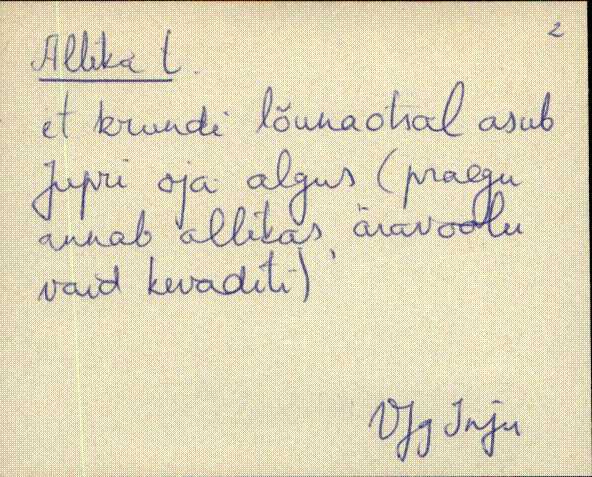 2
Allika t.
et krundi lõunaotsal asub
Jupri oja algus (praegu
annab allikas äravoolu
vaid kevaditi)
VJg Inju